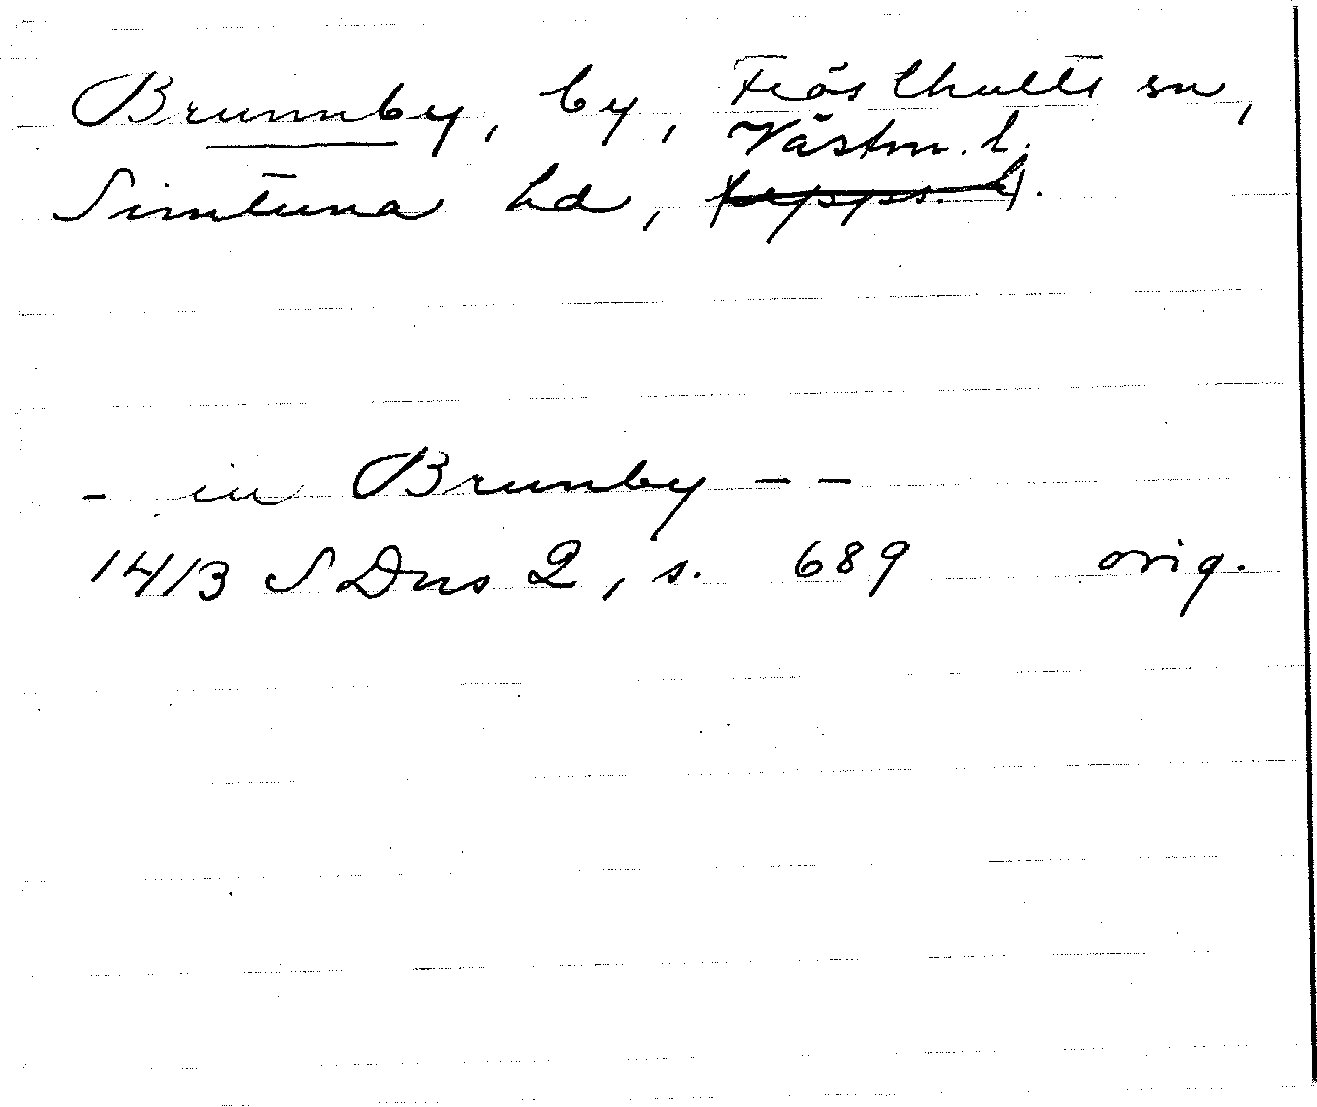 Brunnby, by, Frösthults sn,
Västm. l.
Simtuna hd, (Upps. l).
- in Brunby - -
1413 SDns 2, s. 689 orig.